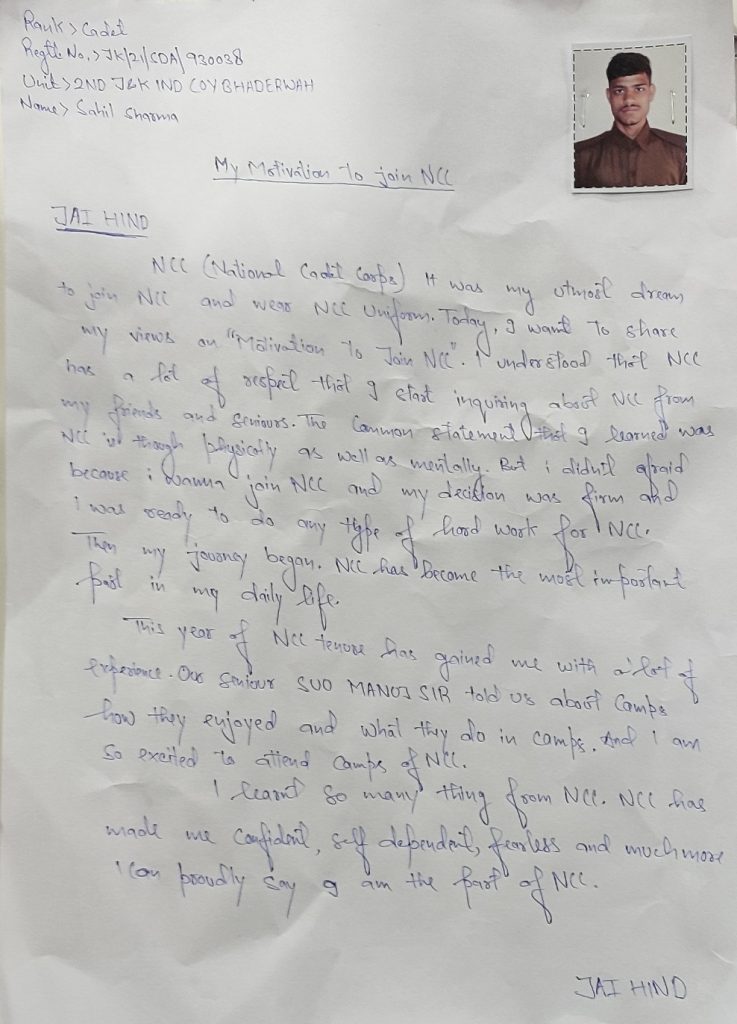 Rank > Cadet
Regtl No. > JK/21/SDA/930038
Unit > 2ND J&K IND COY BHADERWAH
Name > Sahil Sharma
My Motivation To join NCC
JAI HIND
NCC (National Cadet Corps) It was my utmost dream
to join NCC and wear NCC Uniform. Today, I want To share
my views on "Motivation To Join NCC". I understood that NCC
has a lot of respect that I start inquiring about NCC from
my friends and seniours. The Common statement that I learned was
NCC is though physically as well as mentally. But i didn't afraid
because i wanna join NCC and my decision was firm and
I was ready to do any type of hard work for NCC.
Then my journey began. NCC has become the most important
part in my daily life.
This year of NCC tenure has gained me with a lot of
experience. Our Seniour SUO MANOJ SIR told us about Camps
how they enjoyed and what they do in camps. And I am
so excited to attend Camps of NCC.
I learnt so many thing from NCC. NCC has
made me Confident, self dependent, fearless and much more
I can proudly say I am the part of NCC.
JAI HIND